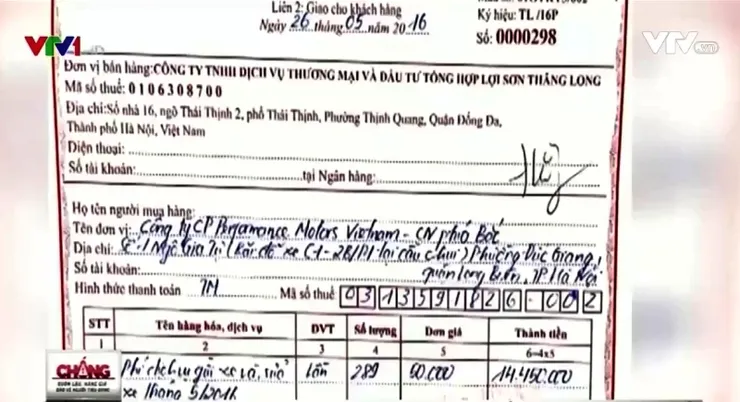 Liên 2: Giao cho khách hàng
Ngày 26 tháng 05 năm 2016
Ký hiệu: TL /16P
Số: 0000298
VTV1
VTV
Đơn vị bán hàng: CÔNG TY TNHH DỊCH VỤ THƯƠNG MẠI VÀ ĐẦU TƯ TỔNG HỢP LỢI SƠN THĂNG LONG
Mã số thuế: 0106308700
Địa chỉ: Số nhà 16, ngõ Thái Thịnh 2, phố Thái Thịnh, Phường Thịnh Quang, Quận Đống Đa,
Thành phố Hà Nội, Việt Nam
Điện thoại:
Số tài khoản: tại Ngân hàng:
Họ tên người mua hàng:
Tên đơn vị: Công ty CP Performance Motors Vietnam - CN phía Bắc
Địa chỉ: Số 1 Ngô Gia Tự (Bãi đỗ xe C1-2B/P1 tại cầu chui) Phường Đức Giang,
Số tài khoản: quận Long Biên, TP Hà Nội
Hình thức thanh toán TM Mã số thuế 0313591826-002
STT Tên hàng hóa, dịch vụ ĐVT Số lượng Đơn giá Thành tiền
1 2 3 4 5 6=4x5
Phí dịch vụ gửi xe và, lần 289 50.000 14.450.000
xe tháng 5/2016
CHẶNG